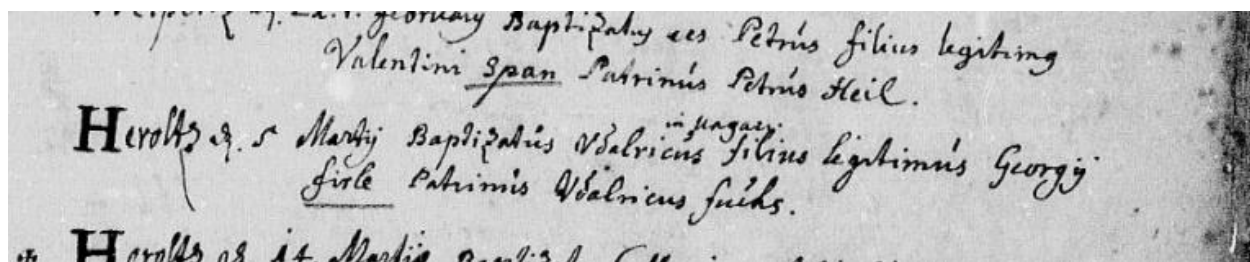 February Baptizatus est Petrus filius legitimg
Valentini Span Patrinus Petrus Heil.
in
Heroltz d. 5 Martij Baptizatus Vdalricus filius legitimus Georgij
firle Patrinus Vdalricus fuchs.
Heroltz d. 14 Martij